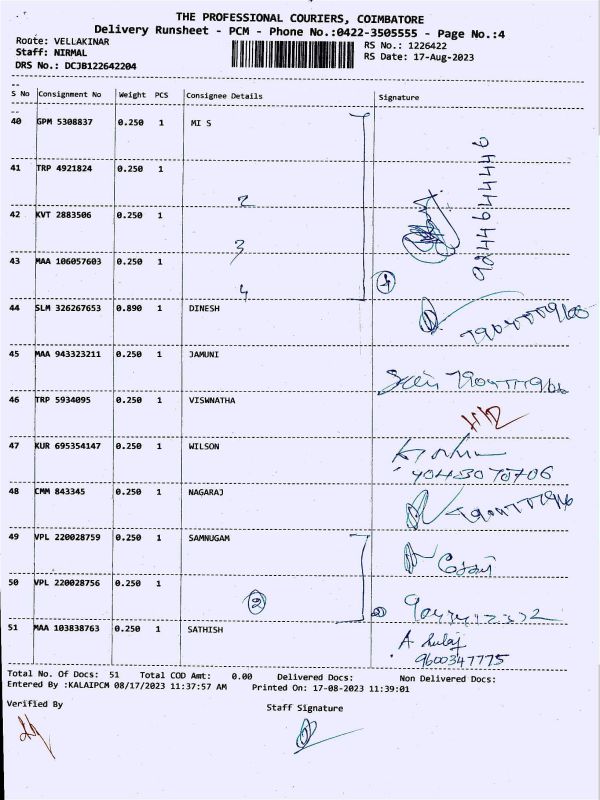 THE PROFESSIONAL COURIERS, COIMBATORE
Delivery Runsheet - PCM - Phone No.:0422-3505555 - Page No.:4
Route: VELLAKINAR
RS No.: 1226422
Staff: NIRMAL
RS Date: 17-Aug-2023
DRS No.: DCJB122642204
S No Consignment No Weight PCS Consignee Details Signature
40 GPM 5308837 0.250 1 MI S
41 TRP 4921824 0.250 1
9244644446
2
42 KVT 2883506 0.250 1
3
43 MAA 106057603 0.250 1
4
4
44 SLM 326267653 0.890 1 DINESH
45 MAA 943323211 0.250 1 JAMUNI
46 TRP 5934095 0.250 1 VISWNATHA
47 KUR 695354147 0.250 1 WILSON
48 CMM 843345 0.250 1 NAGARAJ
49 VPL 220028759 0.250 1 SAMNUGAM
50 VPL 220028756 0.250 1
2
51 MAA 103838763 0.250 1 SATHISH
9600347775
Total No. Of Docs: 51 Total COD Amt: 0.00 Delivered Docs: Non Delivered Docs:
Entered By :KALAIPCM 08/17/2023 11:37:57 AM Printed On: 17-08-2023 11:39:01
Verified By
Staff Signature